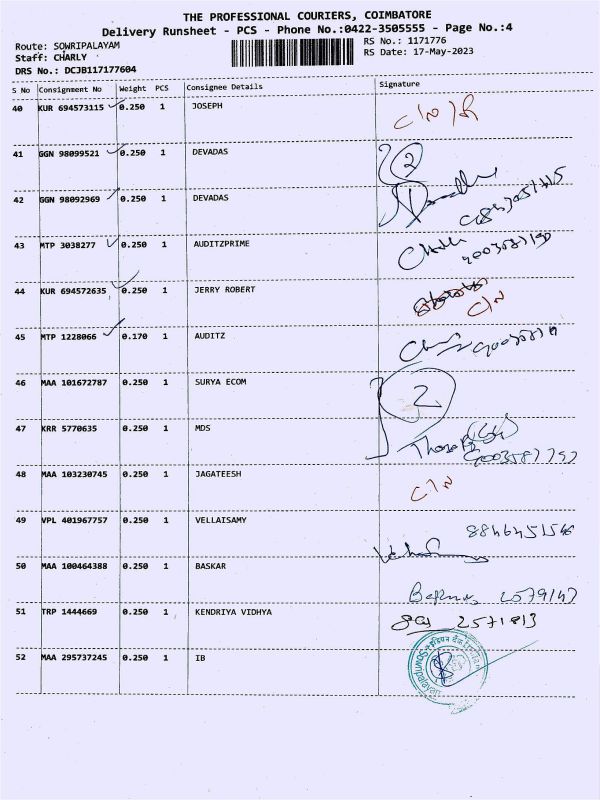 THE PROFESSIONAL COURIERS, COIMBATORE
Delivery Runsheet - PCS - Phone No.:0422-3505555 - Page No.:4
Route: SOWRIPALAYAM
Staff: CHARLY
DRS No.: DCJB117177604
RS No.: 1171776
RS Date: 17-May-2023
S No Consignment No Weight PCS Consignee Details Signature
40 KUR 694573115 0.250 1 JOSEPH C/N
41 GGN 98099521 0.250 1 DEVADAS 2
42 GGN 98092969 0.250 1 DEVADAS
43 MTP 3038277 0.250 1 AUDITZPRIME
44 KUR 694572635 0.250 1 JERRY ROBERT C/N
45 MTP 1228066 0.170 1 AUDITZ
46 MAA 101672787 0.250 1 SURYA ECOM 2
47 KRR 5770635 0.250 1 MDS
48 MAA 103230745 0.250 1 JAGATEESH C/N
49 VPL 401967757 0.250 1 VELLATSAMY
50 MAA 100464388 0.250 1 BASKAR
51 TRP 1444669 0.250 1 KENDRIYA VIDHYA 2571813
52 MAA 295737245 0.250 1 IB